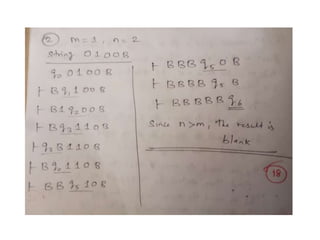 ② m = 1, n = 2
string 0100B
q₀ 0100B
⊢ B q₁ 100B
⊢ B1 q₂ 00B
⊢ B q₃ 110B
⊢ q₃ B110B
⊢ B q₀ 110B
⊢ BB q₅ 10B
⊢ BBB q₅ 0B
⊢ BBBB q₅ B
⊢ BBBBB q₆
Since n>m, the result is
blank
18